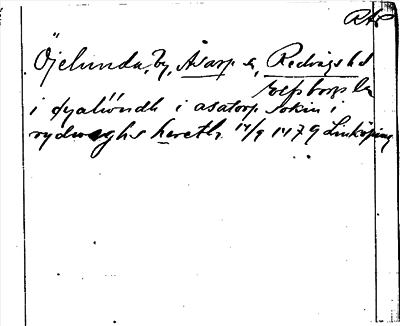 RAP
Öjelunda, by, Åsarp sn, Redvägs hd
Älfsborgs län
i øyalwndh i asatorp sokin i
rydwæghs hæreth. 14/9 1479 Linköping